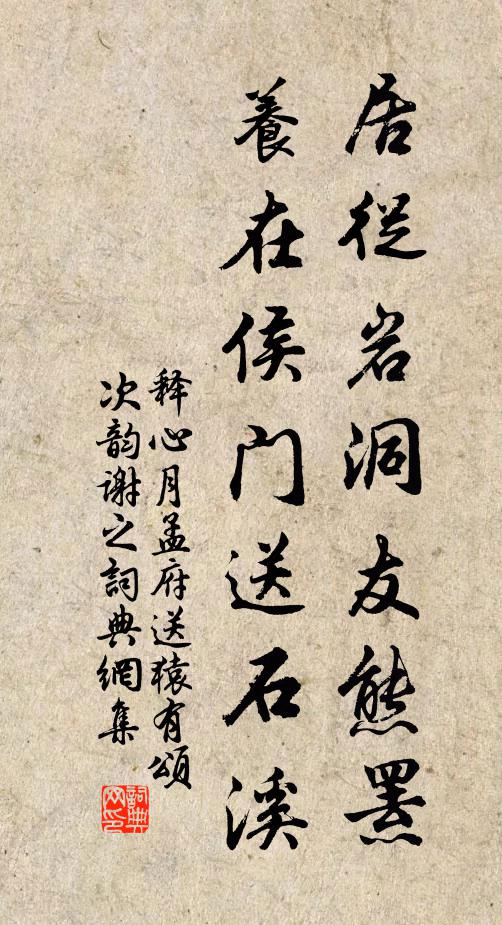 居從岩洞友熊罴
養在侯门送石溪
释心月孟府送猿有頌
次韵謝之詞典網集
詞典
网印